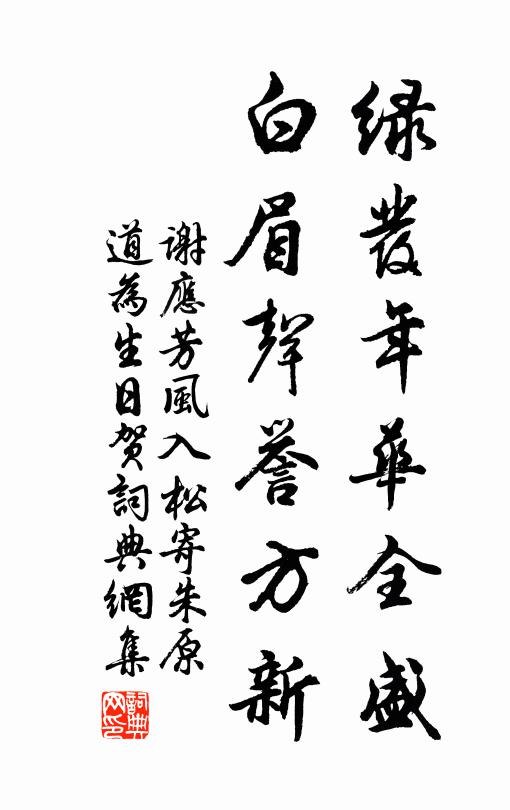 綠發年華全盛
白眉聲譽方新
謝應芳風入松寄朱原
道為生日賀詞典網集
詞典網印